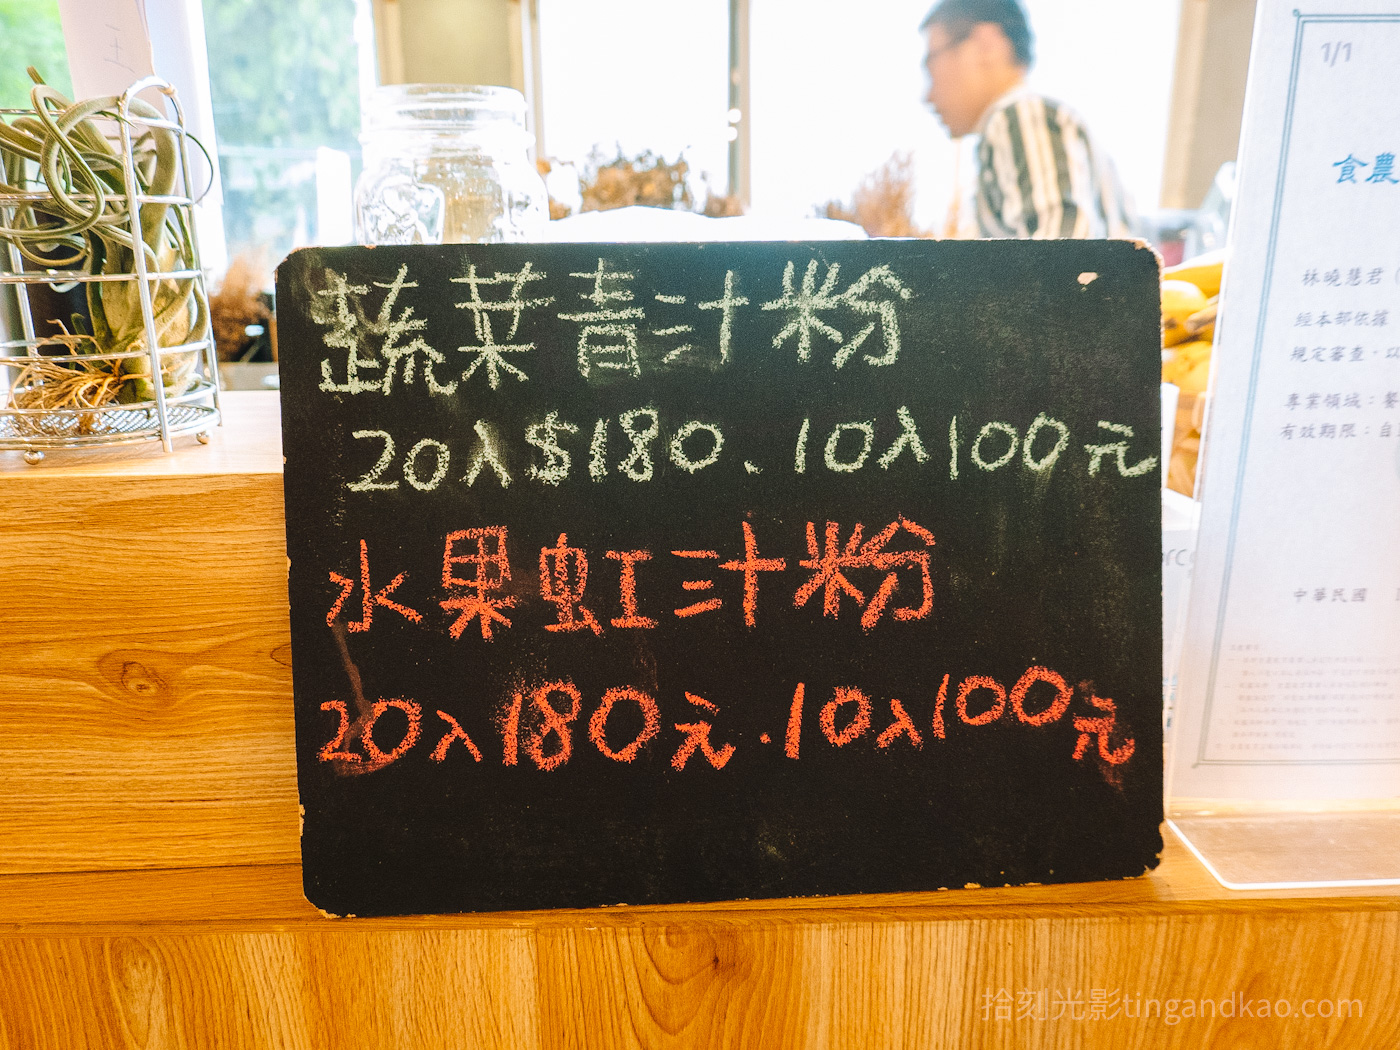 王
蔬菜青汁粉
20入$180、10入100元
水果虹汁粉
20入180元.10入100元
1/1
食農
林曉慧君
經本部依據
規定審查，以
專業領域：餐
有效期限：自
中華民國
拾刻光影tingandkao.com